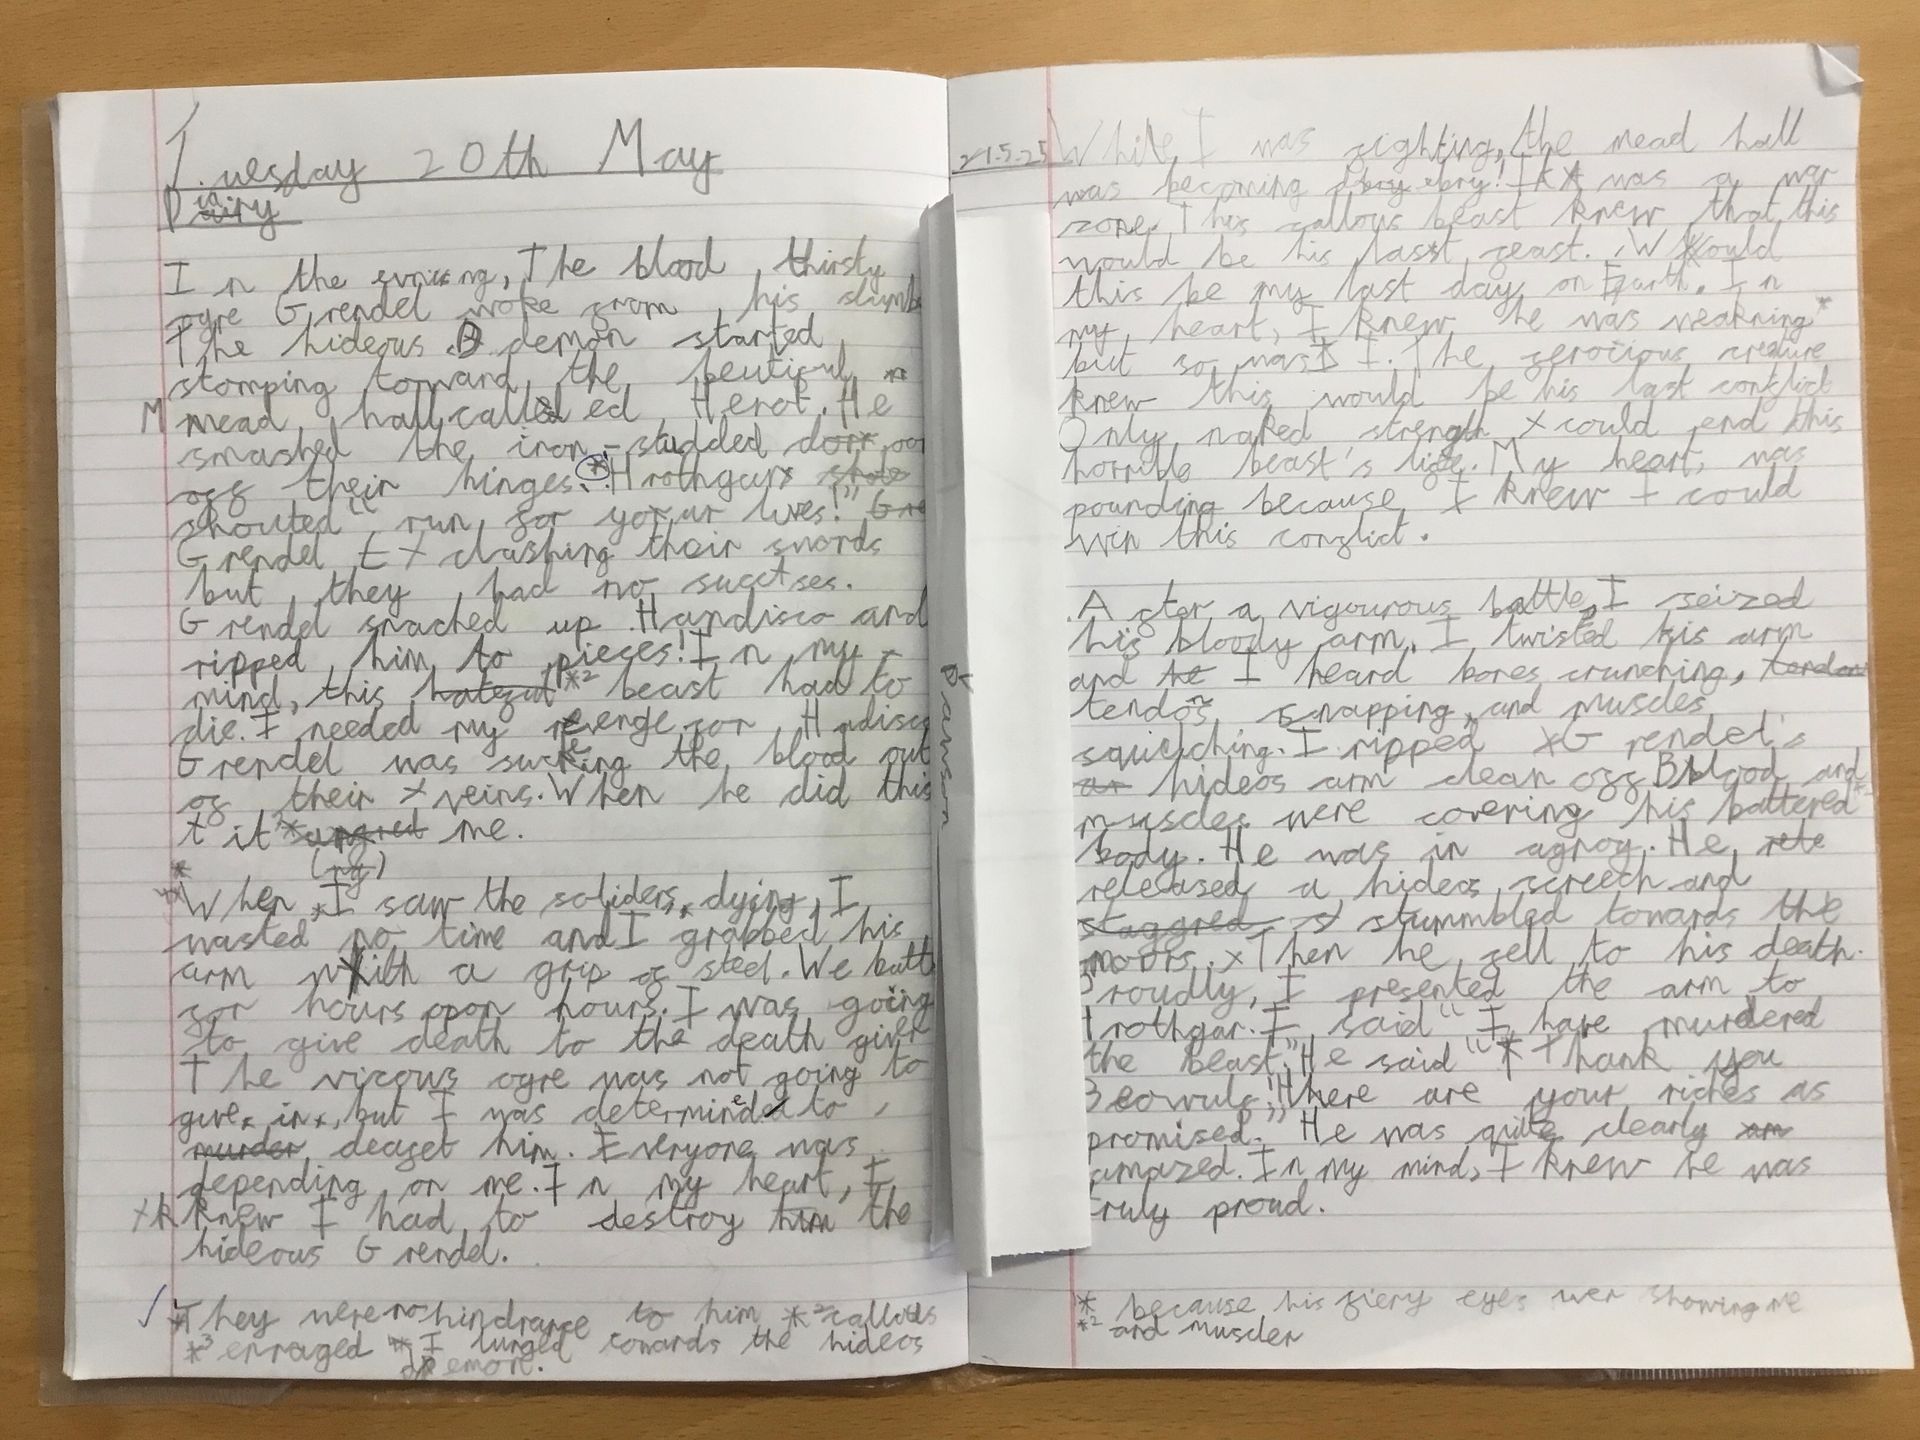 Tuesday 20th May
Diairy
In the evning, The blood thirsty
ogre Grendel woke from his slumb
The hideous demon started
stomping torward the beutiful
M mead hall called Herot. He *
smashed the iron-studded dorr oo
off their hinges. * Hrothgar stoto
shouted "run for your lives!" Gre
Grendel clashing their swords
but they had no succtses.
Grendel snached up Handisco and
ripped him to pieces! In my
mind, this hateful *2 beast had to
die. I needed my revenge for Handisco
Grendel was sucking the blood out
of their veins. When he did this
it *3 angred me.
(ng)
*
When I saw the soliders dying, I
wasted no time and I grabbed his
arm with a grip of steel. We battl
for hours opon hours. I was going
to give death to the death giver
The vicous ogre was not going to
give in, but I was determined to
murder deafet him. Everyone was
depending on me. In my heart, I
k knew I had to destroy him the
hideous Grendel.
* They were no hindrance to him *2 callous
*3 enraged * I lunged towards the hideos
demon.
pawson
21.5.25
While, I was fighting, the mead hall
was becoming ! It was a war
zone. This callous beast knew that this
would be his last feast. Would
this be my last day on Earth. In
my heart, I knew he was weakning *
but so was I. The ferocious creature
knew this would be his last conflict
Only naked strength could end this
horrible beast's life. My heart was
pounding because I knew I could
win this conflict.
After a vigourous battle, I seized
his bloody arm. I twisted his arm
and he I heard bones crunching, tendon
tendons snapping and muscles
squilching. I ripped Grendel's
ar hideos arm clean off Blood and *2
muscles were covering his battered
body. He was in agnoy. He rele
released a hideos screech and
staggred stummbled towards the
moors. Then he fell to his death.
roudly, I presented the arm to
rothgar. I said "I have murdered
the beast." He said "Thank you
Beowulf! "Here are your riches as
promised." He was quite clearly am
amazed. In my mind, I knew he was
truly proud.
* because his fiery eyes wer showing me
*2 and muscler